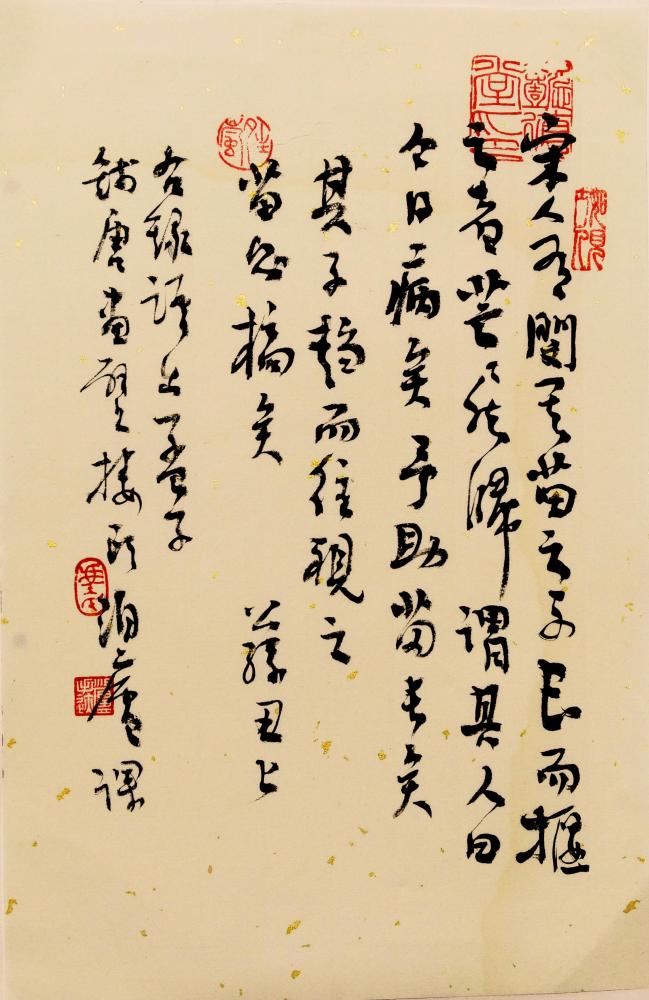 宋人有閔其苗之不長而揠
之者芒〻然歸謂其人曰
今日病矣予助苗長矣
其子趨而往視之
苗則槁矣 公孫丑上
右錄語出孟子
錢唐畫壁樓 泊廬課